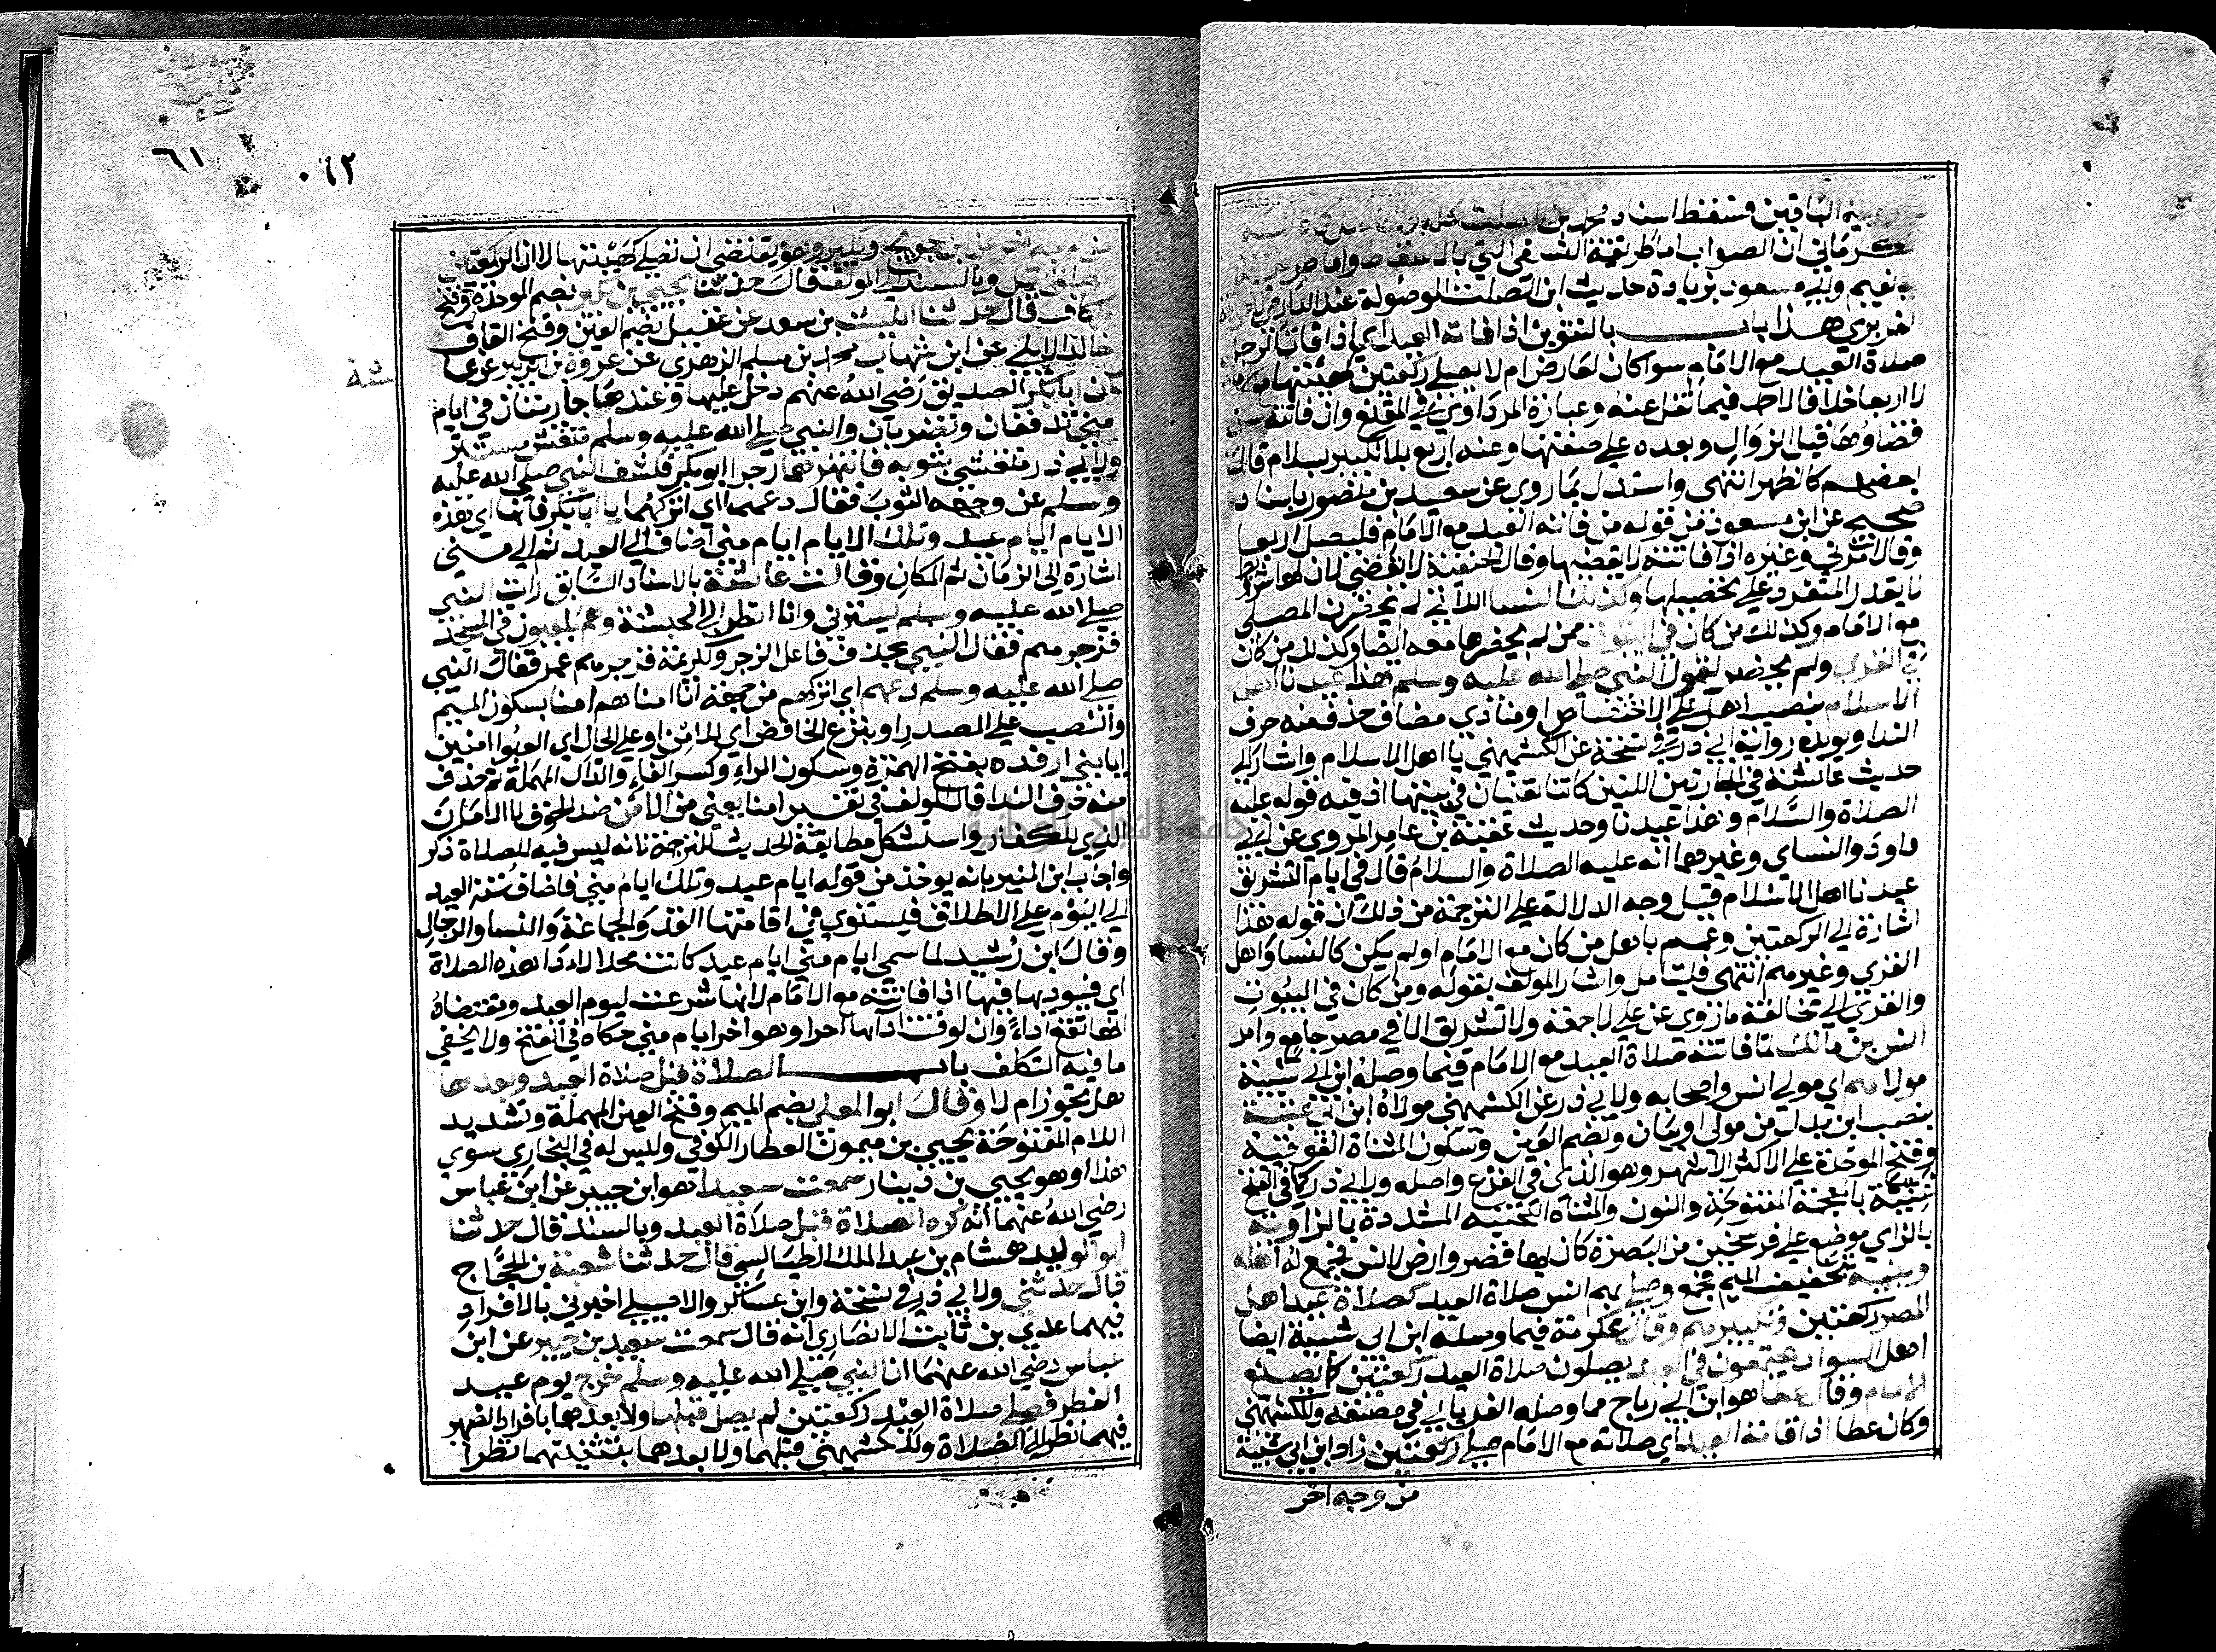 الباقين فسقط اسناد محمد بن الصلت كله
الكرماني ان الصواب اما طريقة النسفي التي بالاسقاط واما طريقة
ابي نعيم وابي مسعود بزيادة حديث ابن الصلت الموصولة عند الدارمي
الفربري هذا باب بالتنوين اذا فاته العيد اي اذا فات الرجل
صلاة العيد مع الامام سوا كان لعارض ام لا يصلي ركعتين كهيئتها مع الامام
لا اربعا خلافا لاحمد فيما نقل عنه وعبارة المرداوي في المقنع وان فاتته سن
قضاوها قبل الزوال وبعده على صفتها وعنه اربع بلا تكبير بسلام قال
بعضهم كالظهر انتهى واستدل بما روي عن سعيد بن منصور باسناد
صحيح عن ابن مسعود من قوله من فاته العيد مع الامام فليصل اربعا
وقال المزني وغيره اذا فاتته لا يقضيها وقال الحنفية لا تقضى لان لها شرائط
لا يقدر المنفرد على تحصيلها وكذلك النسا اللاتي لم يحضرن المصلى
مع الامام وكذلك من كان في البيوت ممن لم يحضرها معه ايضا وكذلك من كان
في القرى ولم يحضر لقول النبي صلى الله عليه وسلم هذا عيدنا اهل
الاسلام بنصب اهل على الاختصاص او منادي مضاف حذف منه حرف
الندا ويويده رواية ابي ذر في نسخة عن الكشميهني يا اهل الاسلام واشار الى
حديث عائشة في الجاريتين اللتين كانتا تغنيان في بيتها اذ فيه قوله عليه
الصلاة والسلام وهذا عيدنا وحديث عقبة بن عامر المروي عن ابي
داود والنساي وغيرهما انه عليه الصلاة والسلام قال في ايام التشريق
عيدنا اهل الاسلام قيل وجه الدلالة على الترجمة من ذلك ان قوله هذا
اشارة الى الركعتين وعمم باهل من كان مع الامام او لم يكن كالنسا واهل
القرى وغيرهم انتهى فليتامل واشار المولف بقوله ومن كان في البيوت
والقرى الى مخالفة ما روي عن علي لا جمعة ولا تشريق الا في مصر جامع وامر
انس بن مالك لما فاتته صلاة العيد مع الامام فيما وصله ابن ابي شيبة
مولاهم اي مولى انس واصحابه ولابي ذر عن الكشميهني مولاه ابن ابي عتبة
بنصب ابن بدل من مولى او بيان وبضم العين وسكون المثناة الفوقية
وفتح الموحدة على الاكثر الاشهر وهو الذي في الفرع واصله ولابي ذر كما في الفتح
غنية بالمعجمة المفتوحة والنون والمثناة التحتية المشددة بالزاوية
بالزاي موضع على فرسخين من البصرة كان بها قصر وارض لانس فجمع له اهله
وبنيه بتخفيف الميم فجمع وصلى بهم انس صلاة العيد كصلاة عيد اهل
المصر ركعتين وتكبيرهم وقال عكرمة فيما وصله ابن ابي شيبة ايضا
اهل السواد يجتمعون في العيد يصلون صلاة العيد ركعتين كما يصنع
الامام وقال عطا هو ابن ابي رباح مما وصله الفريابي في مصنفه وللكشميهني
وكان عطا اذا فاته العيد اي صلاته مع الامام صلى ركعتين زاد ابن ابي شيبة
من وجه اخر
٦١
٠٦٢
من وجه اخر عن ابن جريج ويكبر وهو يقتضي ان تصلى كهيئتها لا ان الركعتين
نفل وبالسند الى المولف قال حدثنا يحيى بن بكير بضم الموحدة وفتح
الكاف قال حدثنا الليث بن سعد عن عقيل بضم العين وفتح القاف
خالد الايلي عن ابن شهاب محمد بن مسلم الزهري عن عروة بن الزبير عن عا
ئشة
ان ابا بكر الصديق رضي الله عنهم دخل عليها وعندها جاريتان في ايام
منى تدففان وتضربان والنبي صلى الله عليه وسلم متغش مستتر
ولابي ذر متغشي بثوبه فانتهرهما زجرا ابو بكر فكشف النبي صلى الله عليه
وسلم عن وجهه الثوب فقال دعهما اي اتركهما يا ابا بكر فانها اي هذه
الايام ايام عيد وتلك الايام ايام منى اضافه الى العيد ثم الى منى
اشارة الى الزمان ثم المكان وقالت عائشة بالاسناد السابق رايت النبي
صلى الله عليه وسلم يسترني وانا انظر الى الحبشة وهم يلعبون في المسجد
فزجرهم فقال النبي بحذف فاعل الزجر ولكريمة فزجرهم عمر فقال النبي
صلى الله عليه وسلم دعهم اي اتركهم من جهة انا امناهم امنا بسكون الميم
والنصب على المصدر او بنزع الخافض اي للامن او على الحال اي العبوا امنين
يابني ارفدة بفتح الهمزة وسكون الراء وكسر الفاء والدال المهملة وحذف
منه حرف الندا قال المولف في تفسير امنا يعني من الامن ضد الخوف لا الامان
الذي للكفار واستشكل مطابقة الحديث للترجمة بانه ليس فيه للصلاة ذكر
واجاب ابن المنير بانه يوخذ من قوله ايام عيد وتلك ايام منى فاضاف سنة العيد
الى اليوم على الاطلاق فيستوي في اقامتها الفذ والجماعة والنسا والرجال
وقال ابن رشيد لما سمى ايام منى ايام عيد كانت محلا لاداء هذه الصلاة
اي فيوديها فيها اذا فاتته مع الامام لانها شرعت ليوم العيد ومقتضاه
انها تقع اداء وان لوقت ادائها اخرا وهو اخر ايام منى حكاه في الفتح ولا يخفى
ما فيه التكلف باب الصلاة قبل صلاة العيد وبعدها
هل تجوز ام لا وقال ابو المعلى بضم الميم وفتح العين المهملة وتشديد
اللام المفتوحة يحيى بن ميمون العطار الكوفي وليس له في البخاري سوى
هذا او هو يحيى بن دينار سمعت سعيدا هو ابن جبير عن ابن عباس
رضي الله عنهما انه كره الصلاة قبل صلاة العيد وبالسند قال حدثنا
ابو الوليد هشام بن عبد الملك الطيالسي قال حدثنا شعبة بن الحجاج
قال حدثني ولابي ذر في نسخة وابن عساكر والاصيلي اخبرني بالافراد
فيهما عدي بن ثابت الانصاري انه قال سمعت سعيد بن جبير عن ابن
عباس رضي الله عنهما ان النبي صلى الله عليه وسلم خرج يوم عيد
الفطر فصلى صلاة العيد ركعتين لم يصل قبلها ولا بعدها بافراد الضمير
فيهما نظرا الى الصلاة وللكشميهني قبلهما ولا بعدهما بتثنيتهما نظرا